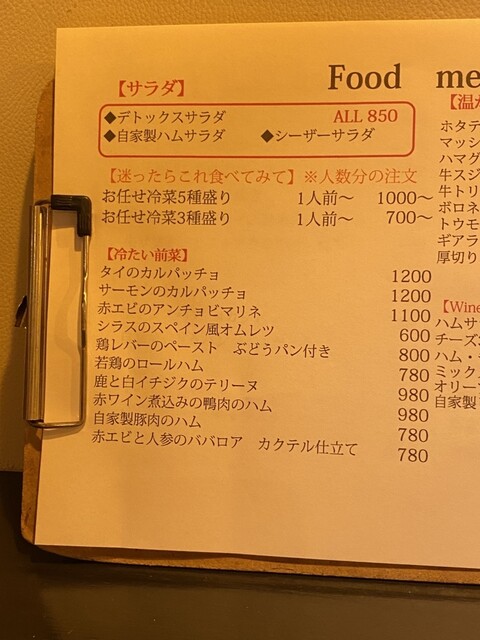 Food me
【サラダ】
◆デトックスサラダ ALL 850
◆自家製ハムサラダ ◆シーザーサラダ
【迷ったらこれ食べてみて】※人数分の注文
お任せ冷菜5種盛り 1人前〜 1000〜
お任せ冷菜3種盛り 1人前〜 700〜
【冷たい前菜】
タイのカルパッチョ 1200
サーモンのカルパッチョ 1200
赤エビのアンチョビマリネ 1100
シラスのスペイン風オムレツ 600
鶏レバーのペースト ぶどうパン付き 800
若鶏のロールハム 780
鹿と白イチジクのテリーヌ 980
赤ワイン煮込みの鴨肉のハム 980
自家製豚肉のハム 780
赤エビと人参のババロア カクテル仕立て 780
【温か
ホタテ
マッシ
ハマグ
牛スジ
牛トリ
ボロネ
トウモ
ギアラ
厚切り
【Wine
ハムサ
チーズ
ハム・
ミック
オリー
自家製